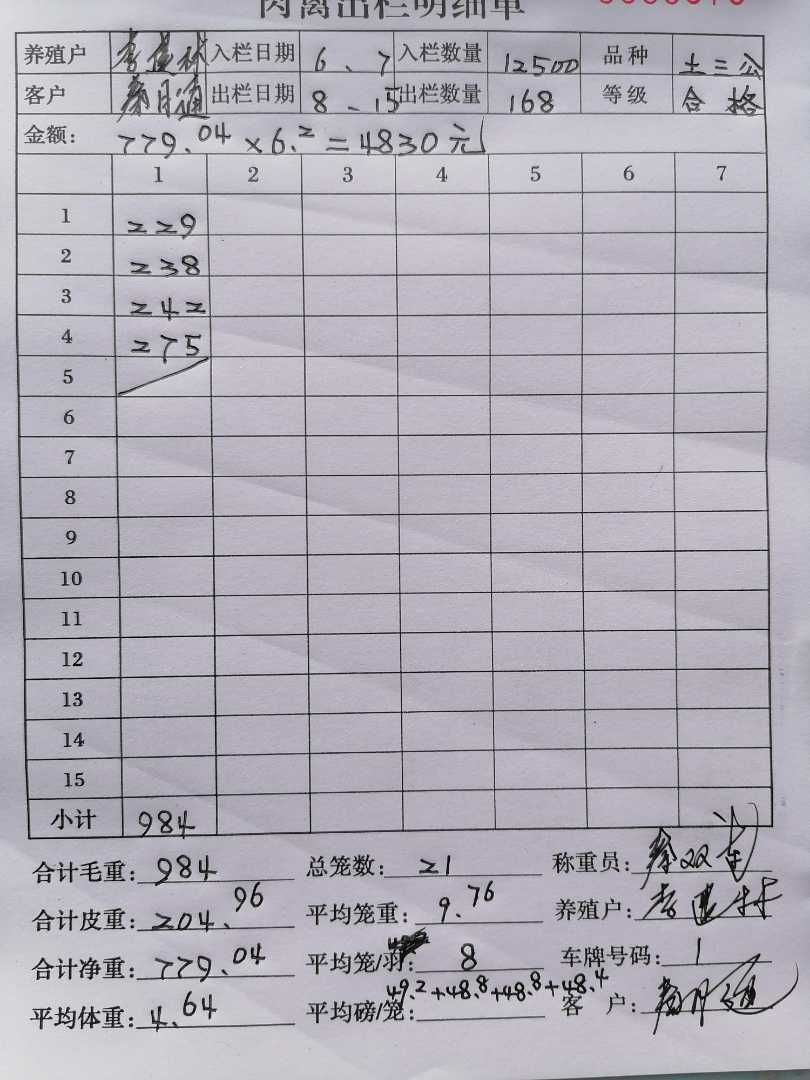 肉禽出栏明细单
养殖户 入栏日期 6、7 入栏数量 12500 品种 土二公
客户 出栏日期 8-15 出栏数量 168 等级 合格
金额: 779.04×6.2=4830元
1 2 3 4 5 6 7
1 229
2 238
3 242
4 275
5
6
7
8
9
10
11
12
13
14
15
小计 984
合计毛重: 984 总笼数: 21 称重员:
合计皮重: 204.96 平均笼重: 9.76 养殖户:
合计净重: 779.04 平均笼/羽: 8 车牌号码: 1
平均体重: 4.64 平均磅/笼: 49.2+48.8+48.8+48.4 客户: